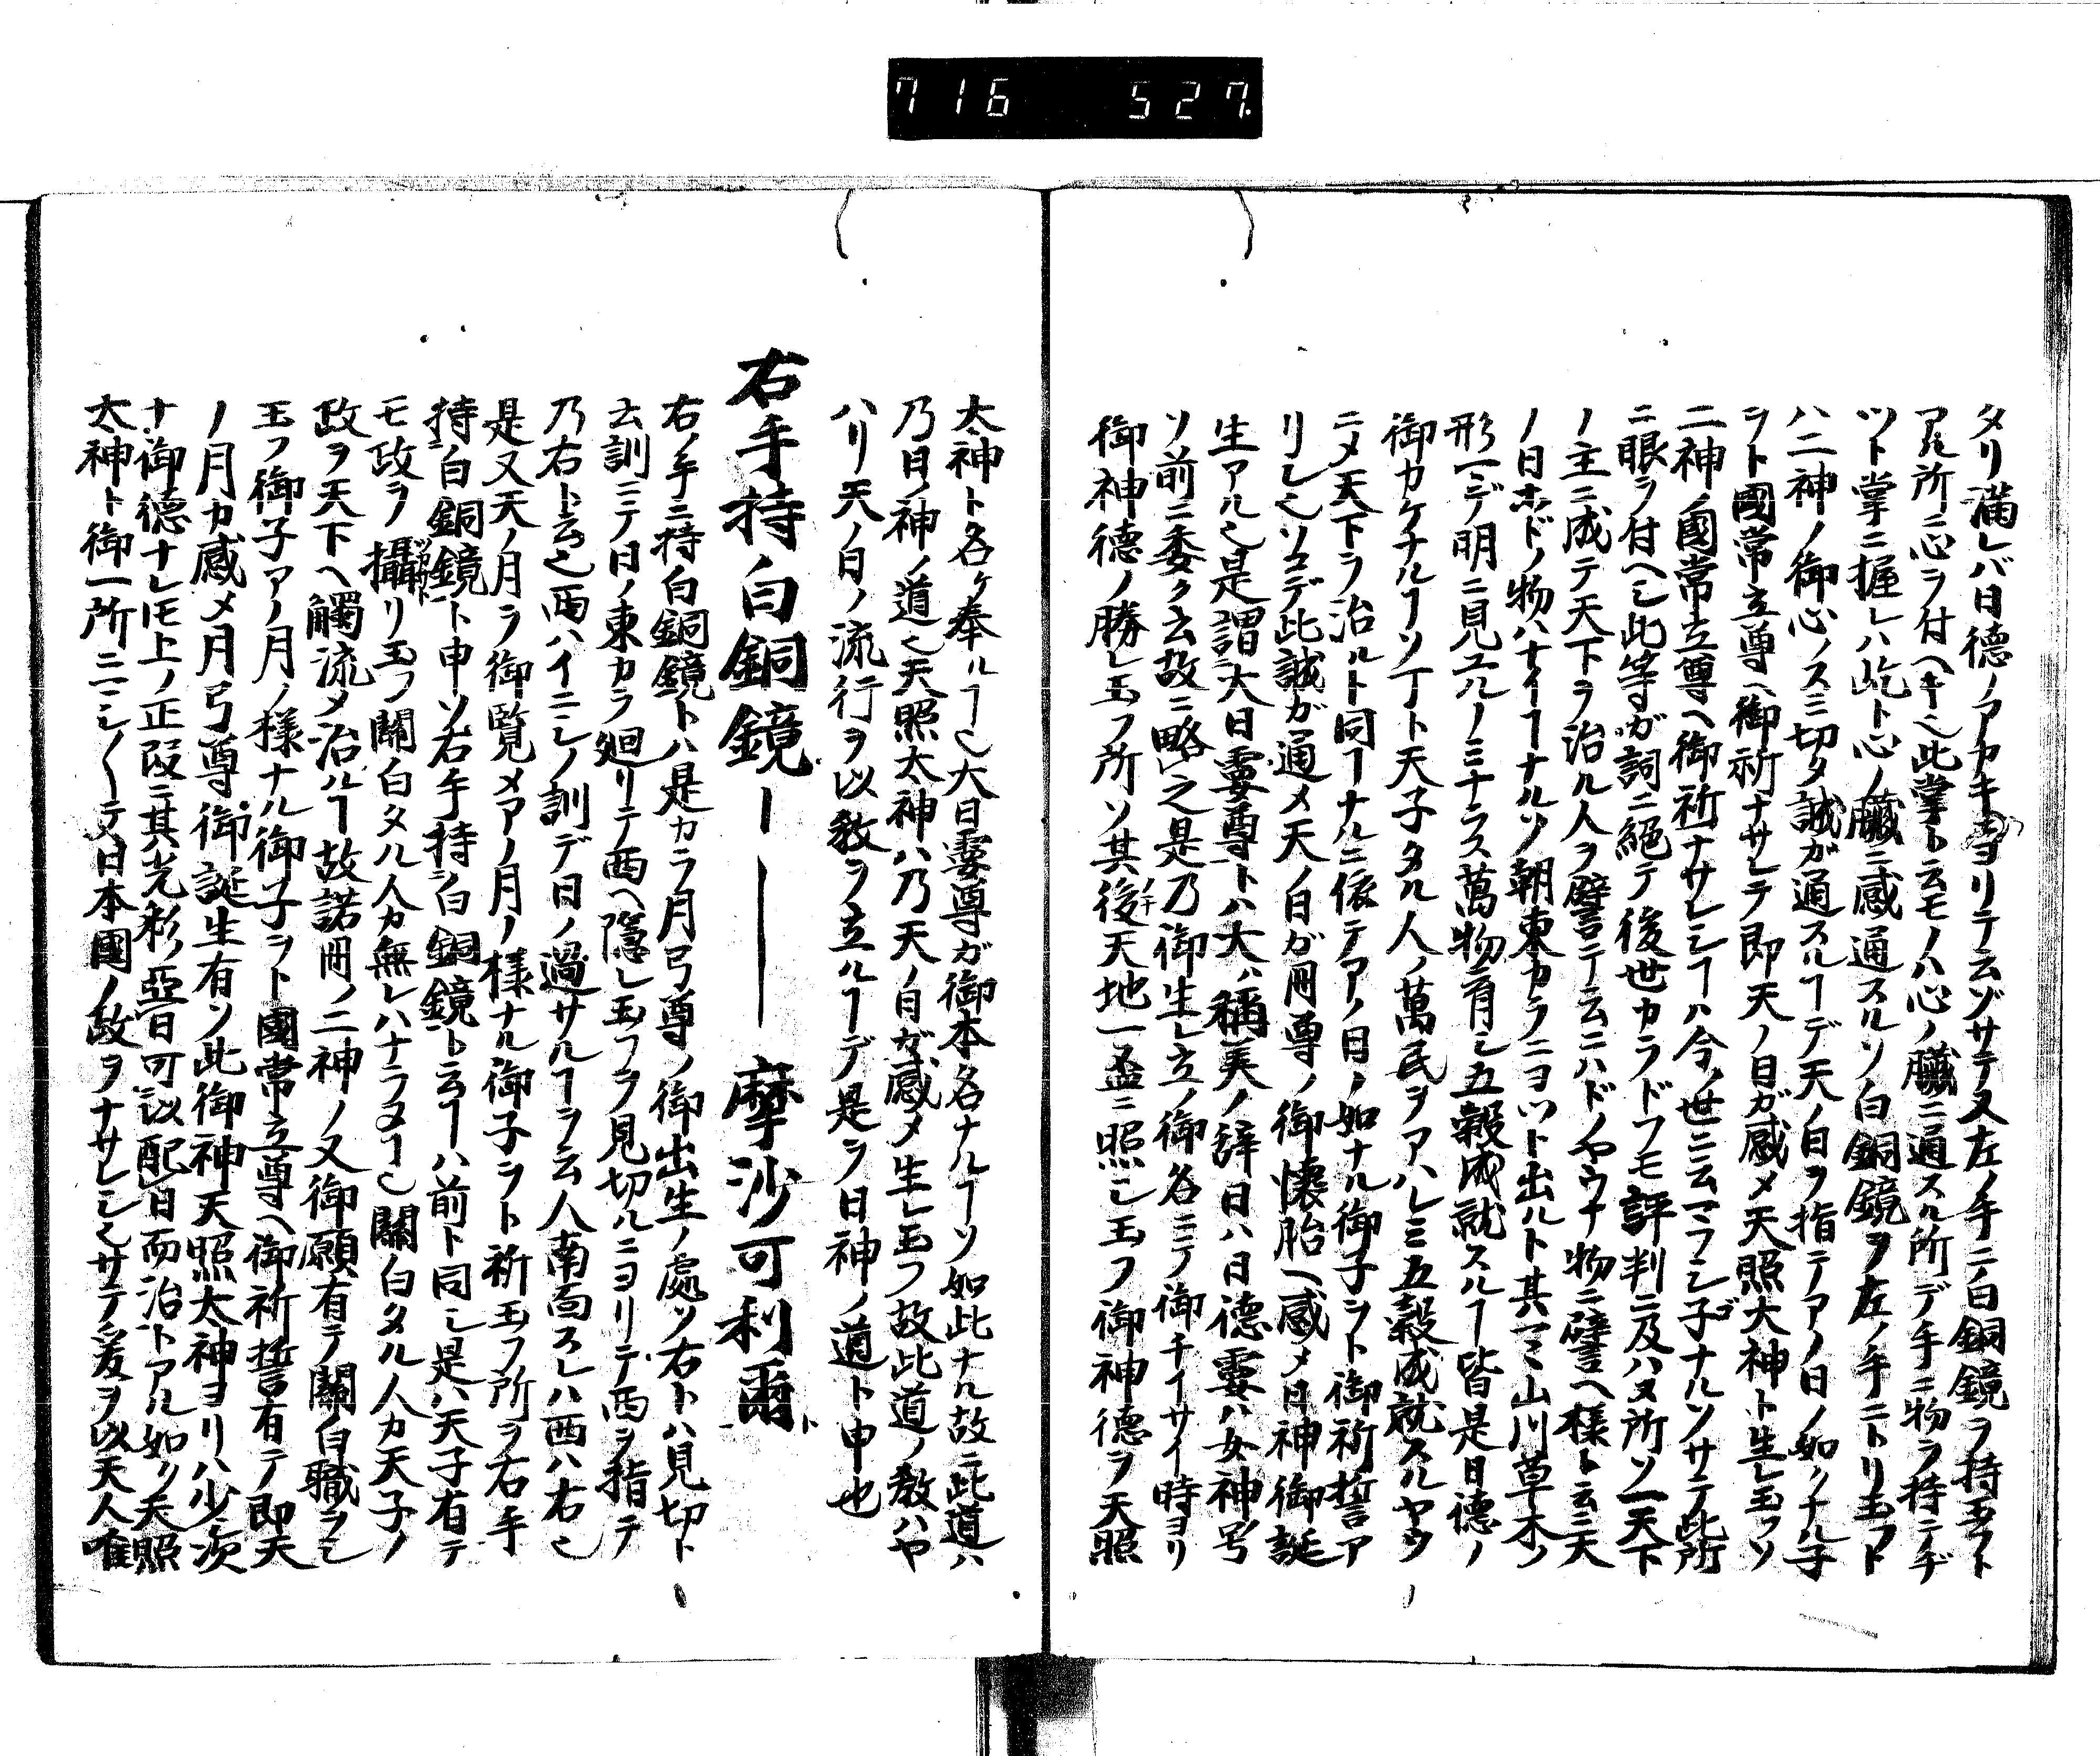 716 527
タリ満レバ日徳ノアカキヨリテ云ゾサテ又左ノ手ニ白銅鏡ヲ持玉フト
アル所ニ心ヲ付ヘキ也此掌ト云モノハ心ノ臓ニ通スル所デ手ニ物ヲ持テヂ
ツト掌ニ握レハ屹ト心ノ臓ニ感通スルソ白銅鏡ヲ左ノ手ニトリ玉フト
ハ二神ノ御心ノスミ切タ誠ガ通スルヿデ天ノ日ヲ指テアノ日ノ如クナル子
ヲト國常立尊ヘ御祈ナサレテ即天ノ日ガ感メ天照大神ト生レ玉フソ
二神ノ國常立尊ヘ御祈ナサレシヿハ今ノ世ニ云マラシ子ナルソサテ此所
ニ眼ヲ付ヘシ此等ガ詞ニ絶テ後世カラドフモ評判ニ及ハヌ所ソ一天下
ノ主ニ成テ天下ヲ治ル人ヲ譬テ云ニハドノヤウナ物ニ譬ヘ様ト云ニ天
ノ日ホドノ物ハナイヿナルソ朝東カラニヨツト出ルト其マヽ山川草木ノ
形マデ明ニ見エルノミナラス萬物育シ五穀成就スルヿ皆是日徳ノ
御カケナルヿソ丁ト天子タル人ノ萬民ヲアハレミ五穀成就スルヤウ
ニメ天下ヲ治ルト同ヿナルニ依テアノ日ノ如ナル御子ヲト御祈誓ア
リレ也ソコデ此誠ガ通メ天ノ日ガ冊尊ノ御懐胎ヘ感メ日神御誕
生アル也是謂大日孁尊トハ大ハ稱美ノ辞日ハ日徳孁ハ女神ノ号
ソ前ニ委ク云故ニ略之是乃御生レ立ノ御名ニテ御チイサイ時ヨリ
御神徳ノ勝レ玉フ所ソ其後天地一盃ニ照シ玉フ御神徳ヲ天照
太神ト名ケ奉ルヿ也大日孁尊ガ御本名ナルヿソ如此ナル故ニ此道ハ
乃日ノ神ノ道也天照太神ハ乃天ノ日ガ感メ生レ玉フ故此道ノ教ハヤ
ハリ天ノ日ノ流行ヲ以教ヲ立ルヿデ是ヲ日神ノ道ト申也
右手持白銅鏡ー――摩沙可利爾
右ノ手ニ持白銅鏡トハ是カラ月弓尊ノ御出生ノ處ソ右トハ見切ト
云訓ニテ日ノ東カラ廻リテ西ヘ隠レ玉フヲ見切ルニヨリテ西ヲ指テ
乃右ト云也西ハイニシノ訓デ日ノ過サルヿヲ云人南面スレハ西ハ右也
是又天ノ月ヲ御覧メアノ月ノ様ナル御子ヲト祈玉フ所ヲ右手
持白銅鏡ト申ソ右手持白銅鏡ト云ヿハ前ト同シ是ハ天子有テ
モ政ヲ攝リ玉フ關白タル人カ無レハナラヌヿ也關白タル人カ天子ノ
政ヲ天下ヘ觸流メ治ルヿ故諾冊ノ二神ノ又御願有テ關白職ヲシ
玉フ御子アノ月ノ様ナル御子ヲト國常立尊ヘ御祈誓有テ即天
ノ月カ感メ月弓尊御誕生有ソ此御神天照太神ヨリハ少シ次
ナ御徳ナレ𪜈上ノ正段ニ其光彩亞日可以配日而治トアル如ク天照
太神ト御一所ニシテ日本國ノ政ヲナサレシ也サテ爰ヲ以天人唯